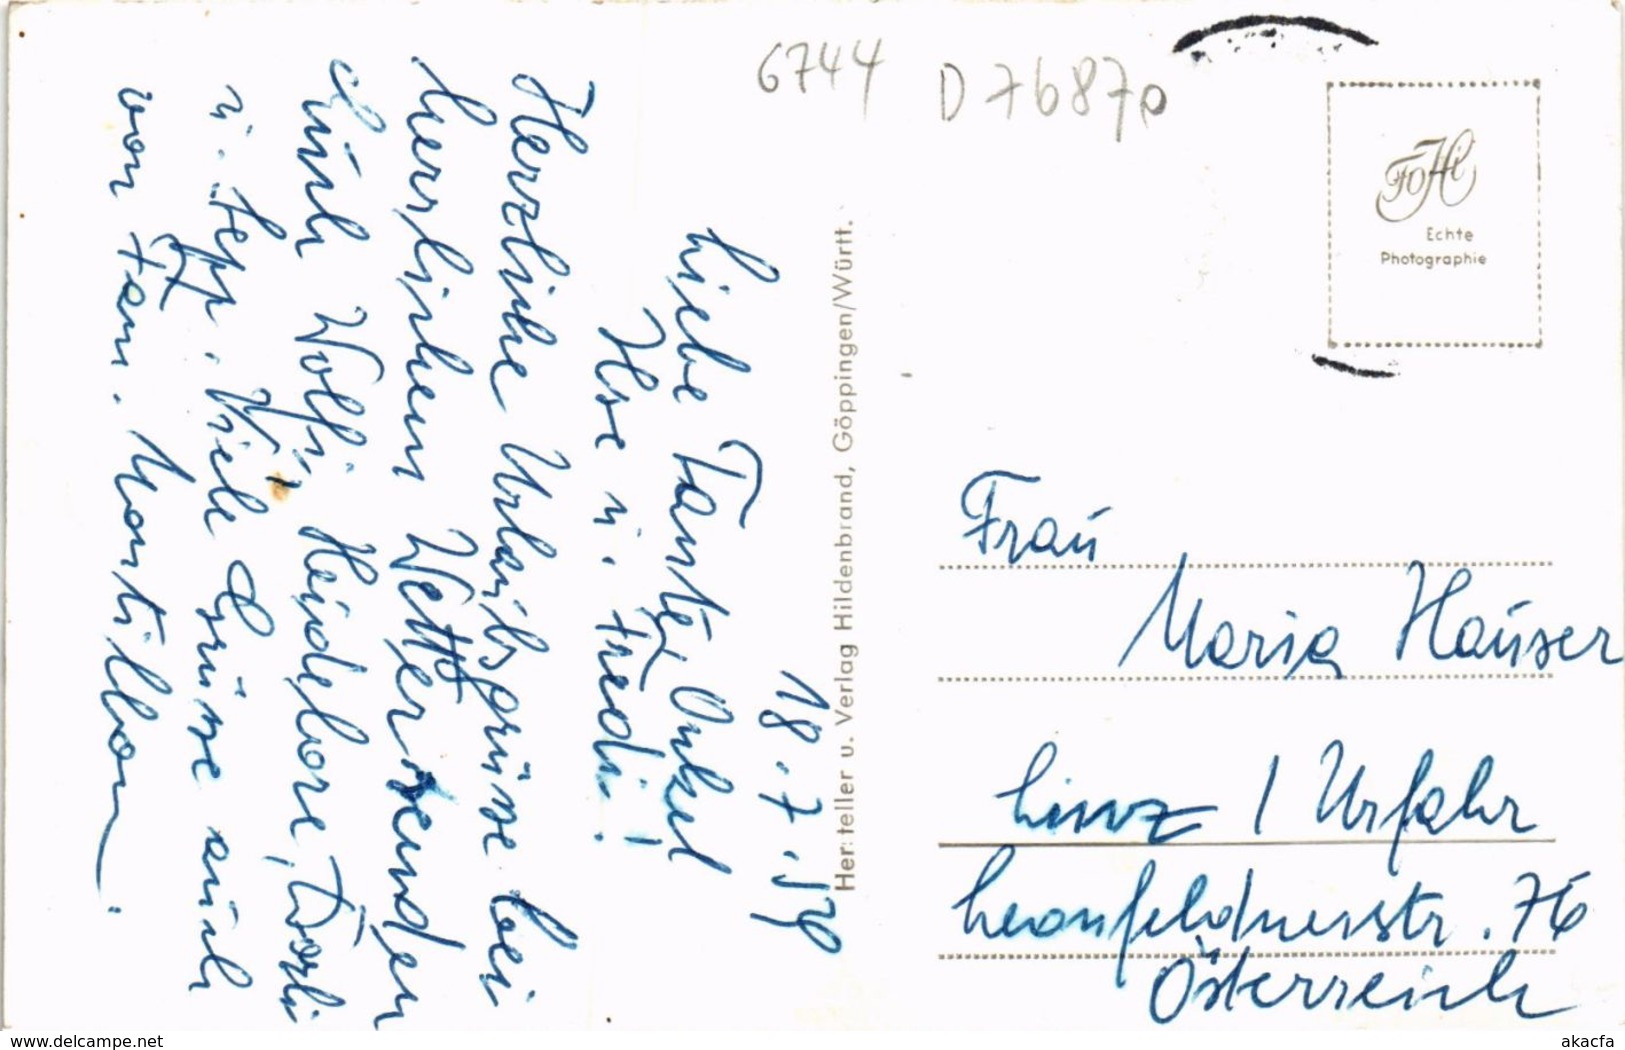 6744
D 76870
FOHi
Echte
Photographie
18.7.59
Liebe Tante, Onkel
Ilse u. Fredi!
Herzliche Urlaubsgrüsse bei
herrlichem Wetter senden
Euch Wolfi, Heidelore, Dorli
u. Sepp. Viele Grüsse auch
von Fam.
Hersteller u. Verlag Hildenbrand, Göppingen/Württ.
Frau
Maria Hauser
Linz / Urfahr
Leonfeldnerstr. 76
Österreich
delcampe.net
akacfa